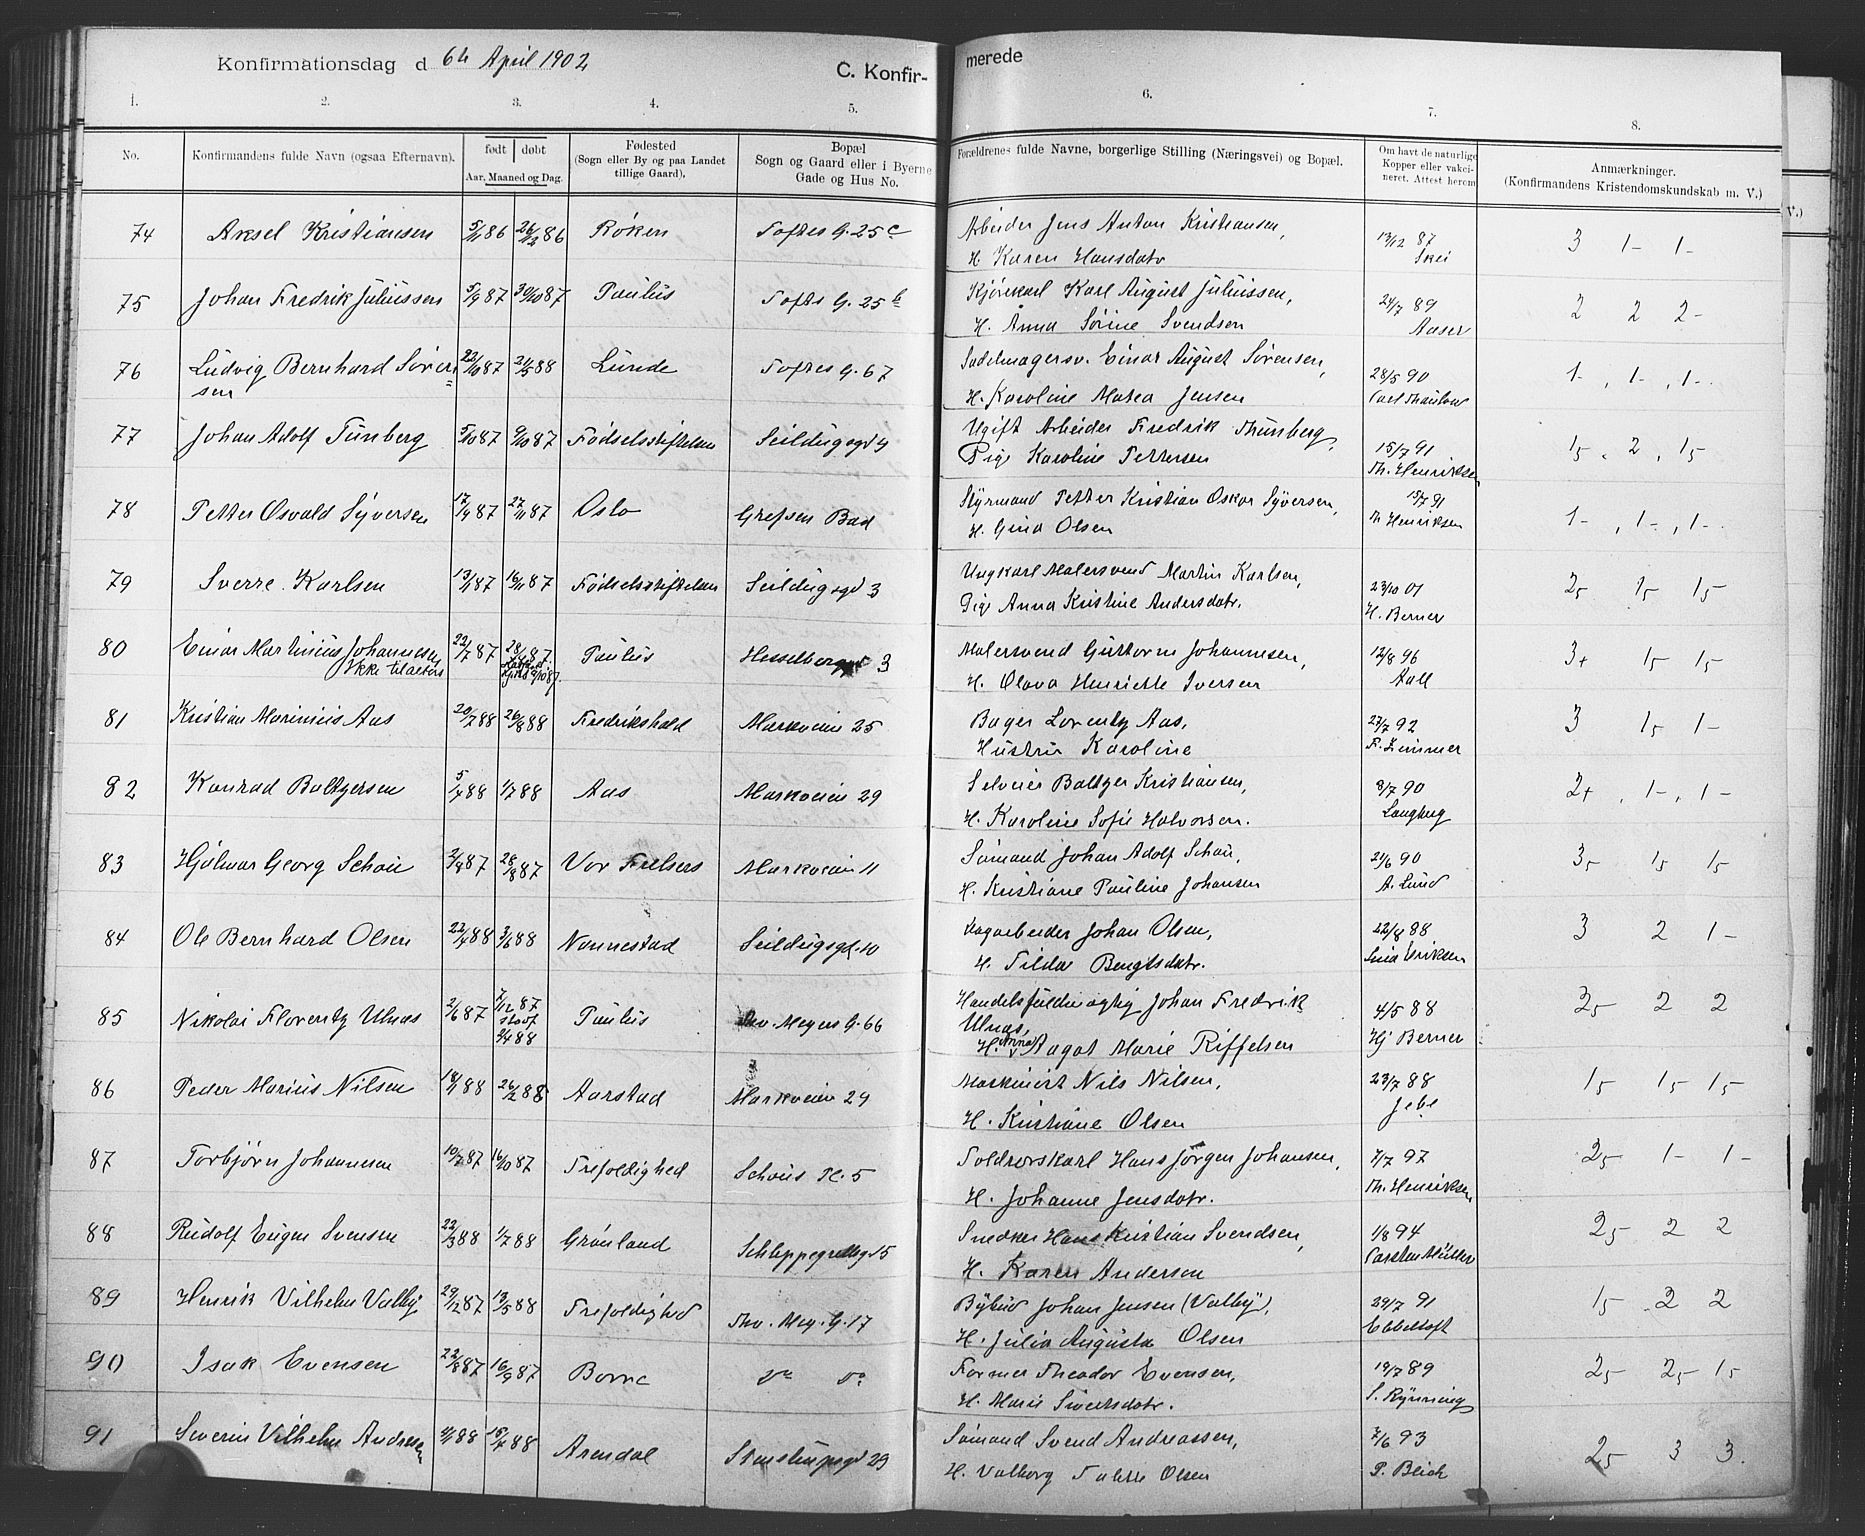 Konfirmationsdag d 6te April 1902
C. Konfir-
merede
1. 2. 3. 4. 5. 6. 7. 8.
No.
Konfirmandens fulde Navn (ogsaa Efternavn).
født | døbt
Aar, Maaned og Dag.
Fødested
(Sogn eller By og paa Landet
tillige Gaard).
Bopæl
Sogn og Gaard eller i Byerne
Gade og Hus No.
Forældrenes fulde Navne, borgerlige Stilling (Næringsvei) og Bopæl.
Om havt de naturlige
Kopper eller vakci-
neret. Attest herom
Anmærkninger.
(Konfirmandens Kristendomskundskab m. V.)
V.)
74 Aksel Kristiansen 5/11 86 26/12 86 Røken Toftes G. 25 c Arbeider Jens Anton Kristiansen, 13/12 87 3 1- 1-
H. Karen Hansdatr Skei
75 Johan Fredrik Juliussen 5/9 87 30/10 87 Paulus Toftes G. 25 b Kjørekarl Karl August Juliussen, 24/7 89 2 2 2-
H. Anna Sørine Svendsen Aaser
76 Ludvig Bernhard Søren= 22/10 87 21/5 88 Lunde Toftes G. 67 Sadelmagersv. Einar August Sørensen, 28/5 90 1-, 1-, 1-.
sen H. Karoline Matea Jensen Carl Thaulow
77 Johan Adolf Tunberg 5/10 87 9/10 87 Fødselsstiftelsen Seildugsgd 9 Ugift Arbeider Fredrik Thunberg, 15/7 91 15, 2, 15
Pige Karoline Pettersen Th. Henriksen
78 Petter Osvald Syversen 17/9 87 27/11 87 Oslo Grefsen Bad Styrmand Petter Kristian Oskar Syversen, 15/7 91 1-, 1-, 1-.
H. Gina Olsen Th Henriksen
79 Sverre Karlsen 13/11 87 16/11 87 Fødselsstiftelsen Seildugsgd 3 Ungkarl Malersvend Martin Karlsen, 23/10 01 25 15 15
Pige Anna Kristine Andersdatr. H. Berner
80 Einar Martinius Johannesen 22/7 87 Paulus Hesselbergsgd 3 Malersvend Guttorm Johannesen, 12/8 96 3+ 15 15
Ikke til alters H. Olava Henriette Iversen Aall
81 Kristian Marinius Aas 20/7 88 26/8 88 Fredrikshald Markveien 25 Bager Lorentz Aas, 27/7 92 3 15 1-
Hustru Karoline F. Zimmer
82 Konrad Baltzersen 5/4 88 1/7 88 Aas Markveien 29 Selveier Baltzer Kristiansen, 8/7 90 2+, 1-, 1-
H. Karoline Sofie Halvorsen. Langberg
83 Hjalmar Georg Schou 2/8 87 28/8 87 Vor Frelsers Markveien 11 Sømand Johan Adolf Schou, 21/6 90 35 15 15
H. Kristiane Pauline Johansen A. Lund
84 Ole Bernhard Olsen 22/4 88 3/6 88 Nannestad Seildugsgd. 10 Dagarbeider Johan Olsen, 22/8 88 3 2 1-
H. Tilda Bengtsdatr.
85 Nikolai Florentz Ulnæs 2/6 87 7/12 87 Paulus Thv. Meyers G. 66 Handelsfuldmægtig Johan Fredrik 4/5 88 25 2 2
2/4 88 Ulnæs,
H. Anna Aagot Marie Riffelsen Hj Berner
86 Peder Marius Nilsen 18/1 88 26/2 88 Aarstad Markveien 29 Maskinist Nils Nilsen, 23/7 88 15 15 15
H. Kristiane Olsen Jebe
87 Torbjørn Johannesen 10/7 87 16/10 87 Trefoldighed Schous Pl. 5 Toldrorskarl Hans Jørgen Johansen, 7/7 97 25 1- 1-
H. Johanne Jensdatr. Th. Henriksen
88 Rudolf Eugen Svensen 22/3 88 1/7 88 Grønland Schleppegrellsgd 15 Snedker Hans Kristian Svendsen, 1/8 94 25 2 2
H. Karen Andersen Carsten Müller
89 Henrik Vilhelm Valby 29/12 87 13/5 88 Trefoldighed Thv. Mey. G. 17 Bybud Johan Jensen (Valby), 29/7 91 15 2 2
H. Julia Augusta Olsen Ebbeltoft
90 Isak Evensen 22/8 87 16/9 87 Borre do do Former Theodor Evensen, 19/7 89 25 25 15
H. Marie Sivertsdatr. S. Rynning
91 Severin Vilhelm Andresen 4/1 88 15/7 88 Arendal Stenstrupsgd 29 Sømand Svend Andreassen, 7/6 93 25 3 3.
H. Valborg Talette Olsen P. Blich